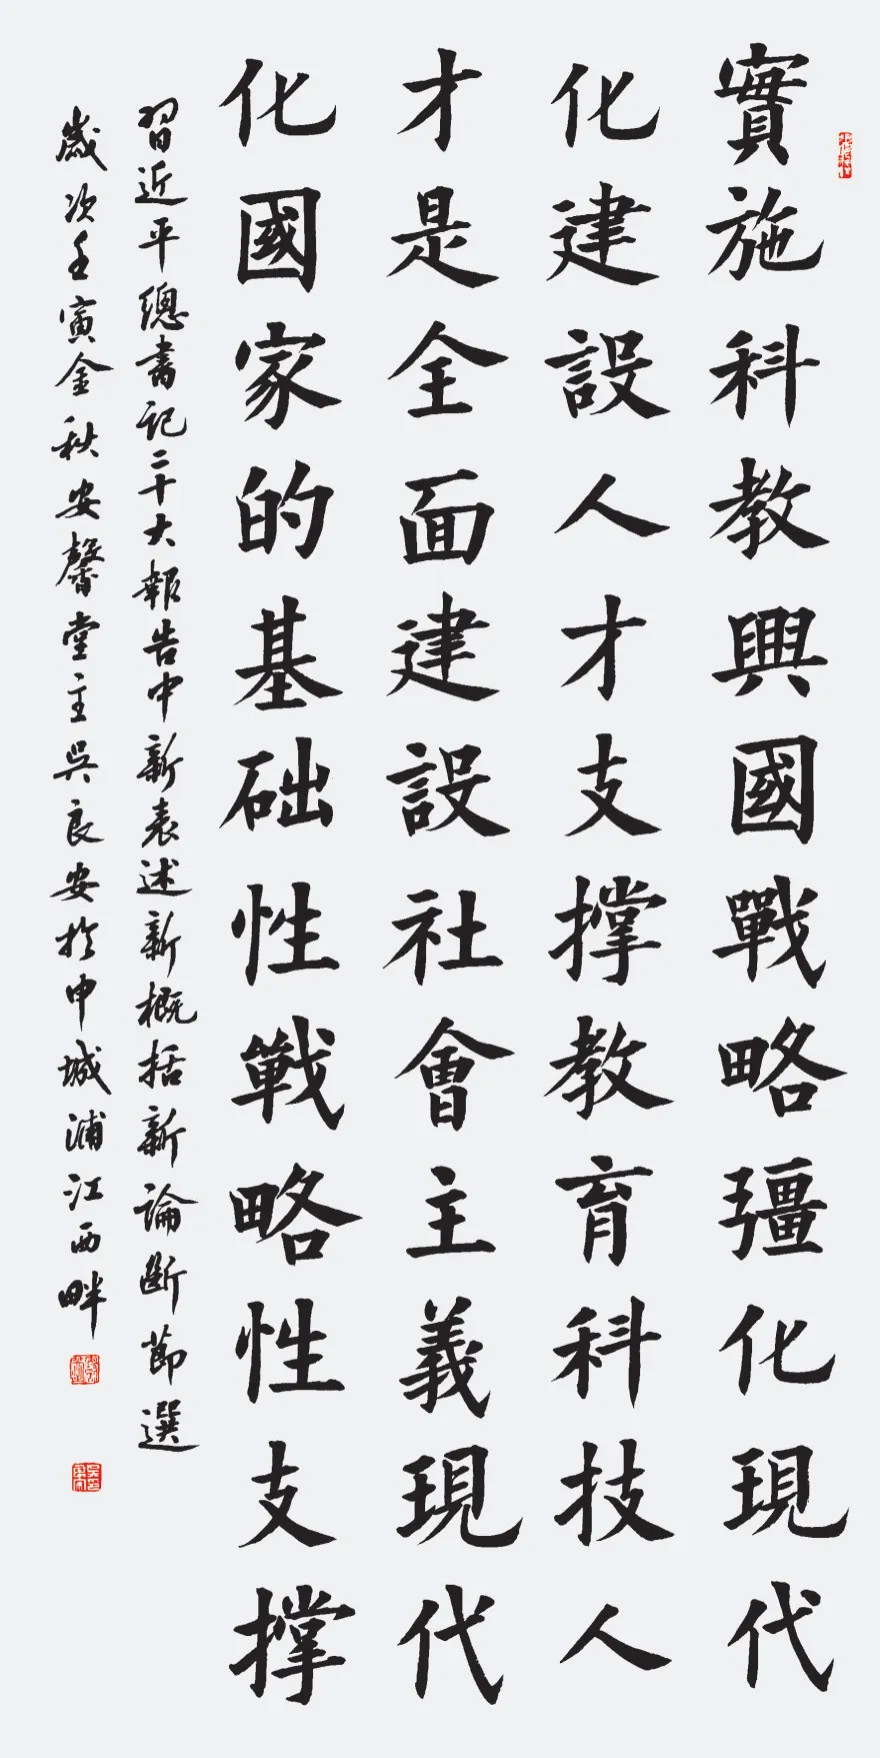 實施科教興國戰略彊化現代
化建設人才支撐教育科技人
才是全面建設社會主義現代
化國家的基础性戰略性支撐
習近平總書記二十大報告中新表述新概括新論斷節選
歲次壬寅金秋安馨堂主吳良安於申城浦江西畔